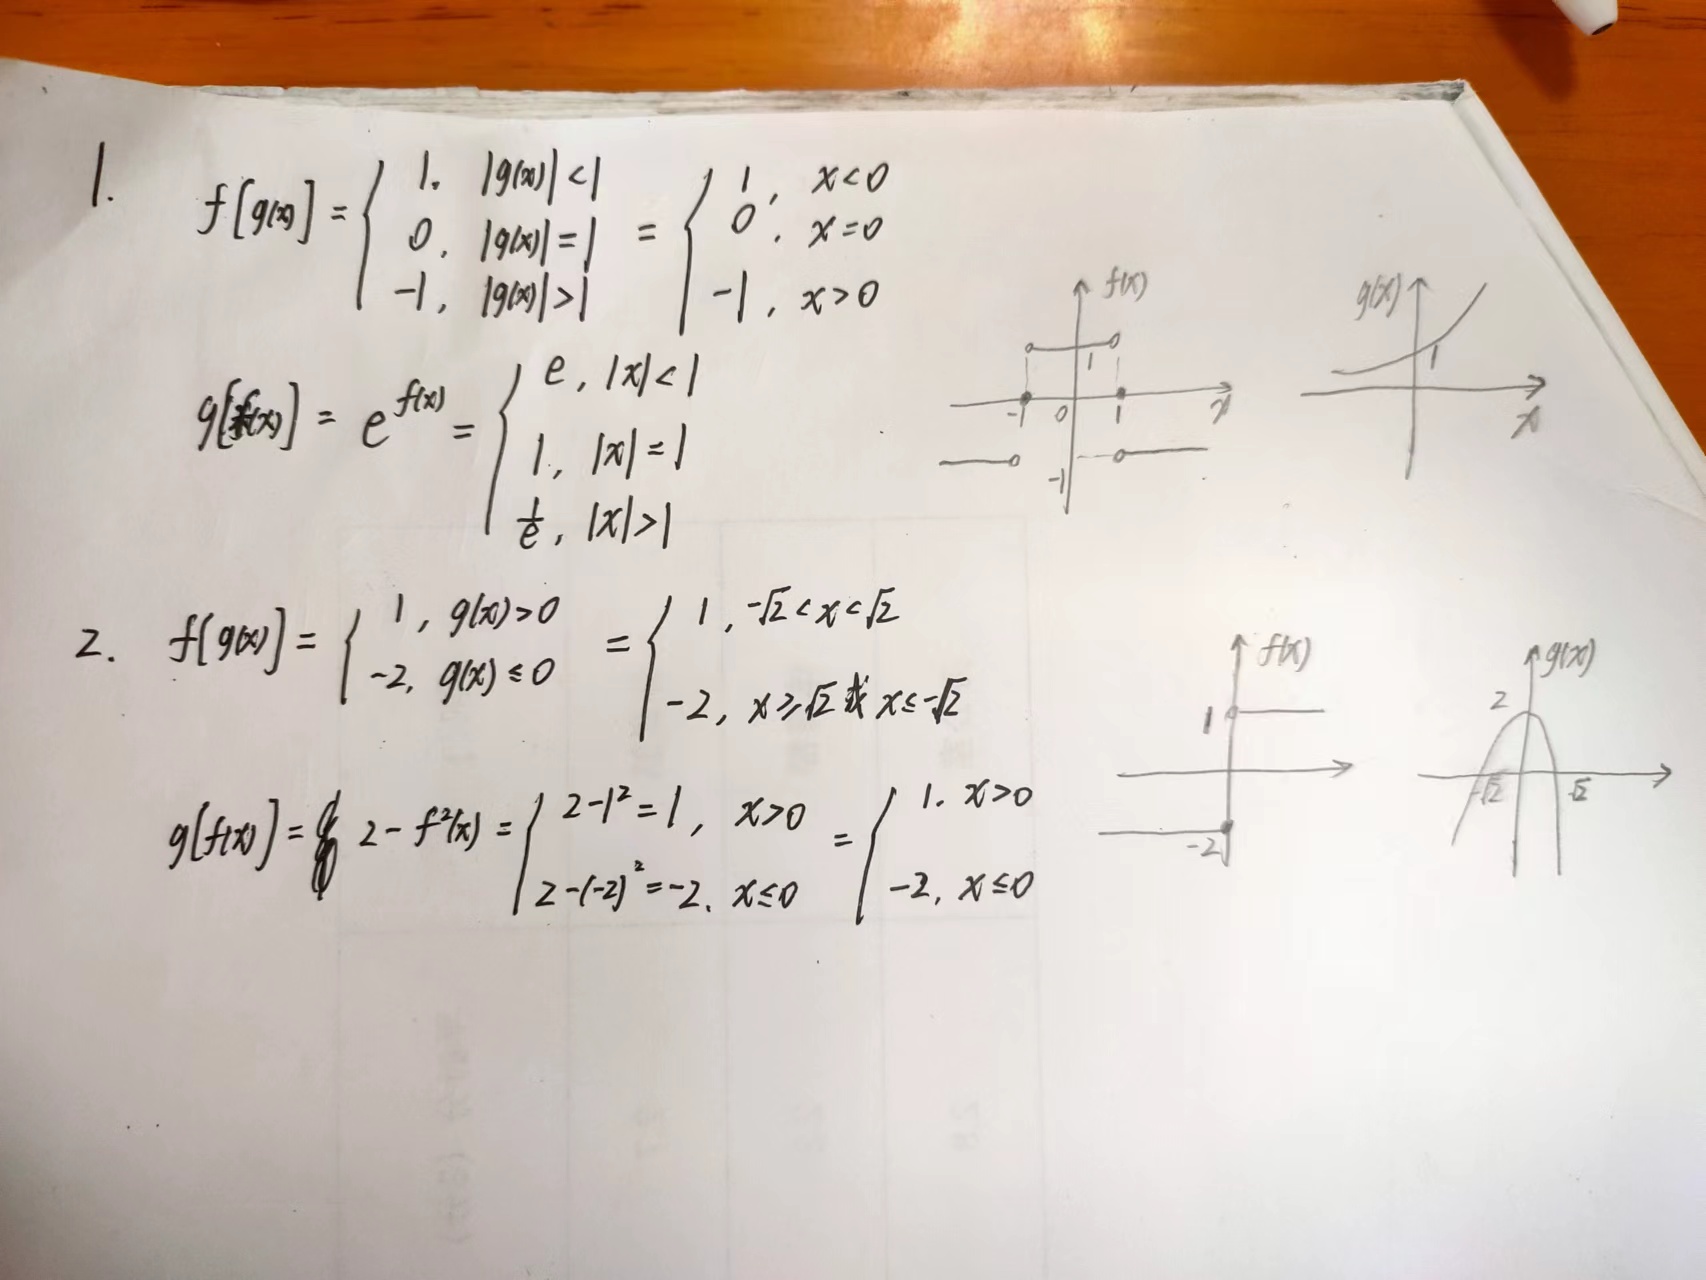 1.
f[g(x)] = { 1, |g(x)|<1 = { 1, x<0
0, |g(x)|=1 0, x=0
-1, |g(x)|>1 -1, x>0
g[f(x)] = e^{f(x)} = { e, |x|<1
1, |x|=1
1/e, |x|>1
f(x)
1
-1 0 1 x
-1
g(x)
1
x
2. f[g(x)] = { 1, g(x)>0 = { 1, -√2<x<√2
-2, g(x)≤0 -2, x≥√2 或 x≤-√2
g[f(x)] = 2-f²(x) = { 2-1²=1, x>0 = { 1, x>0
2-(-2)²=-2, x≤0 -2, x≤0
f(x)
1
-2
g(x)
2
-√2 √2